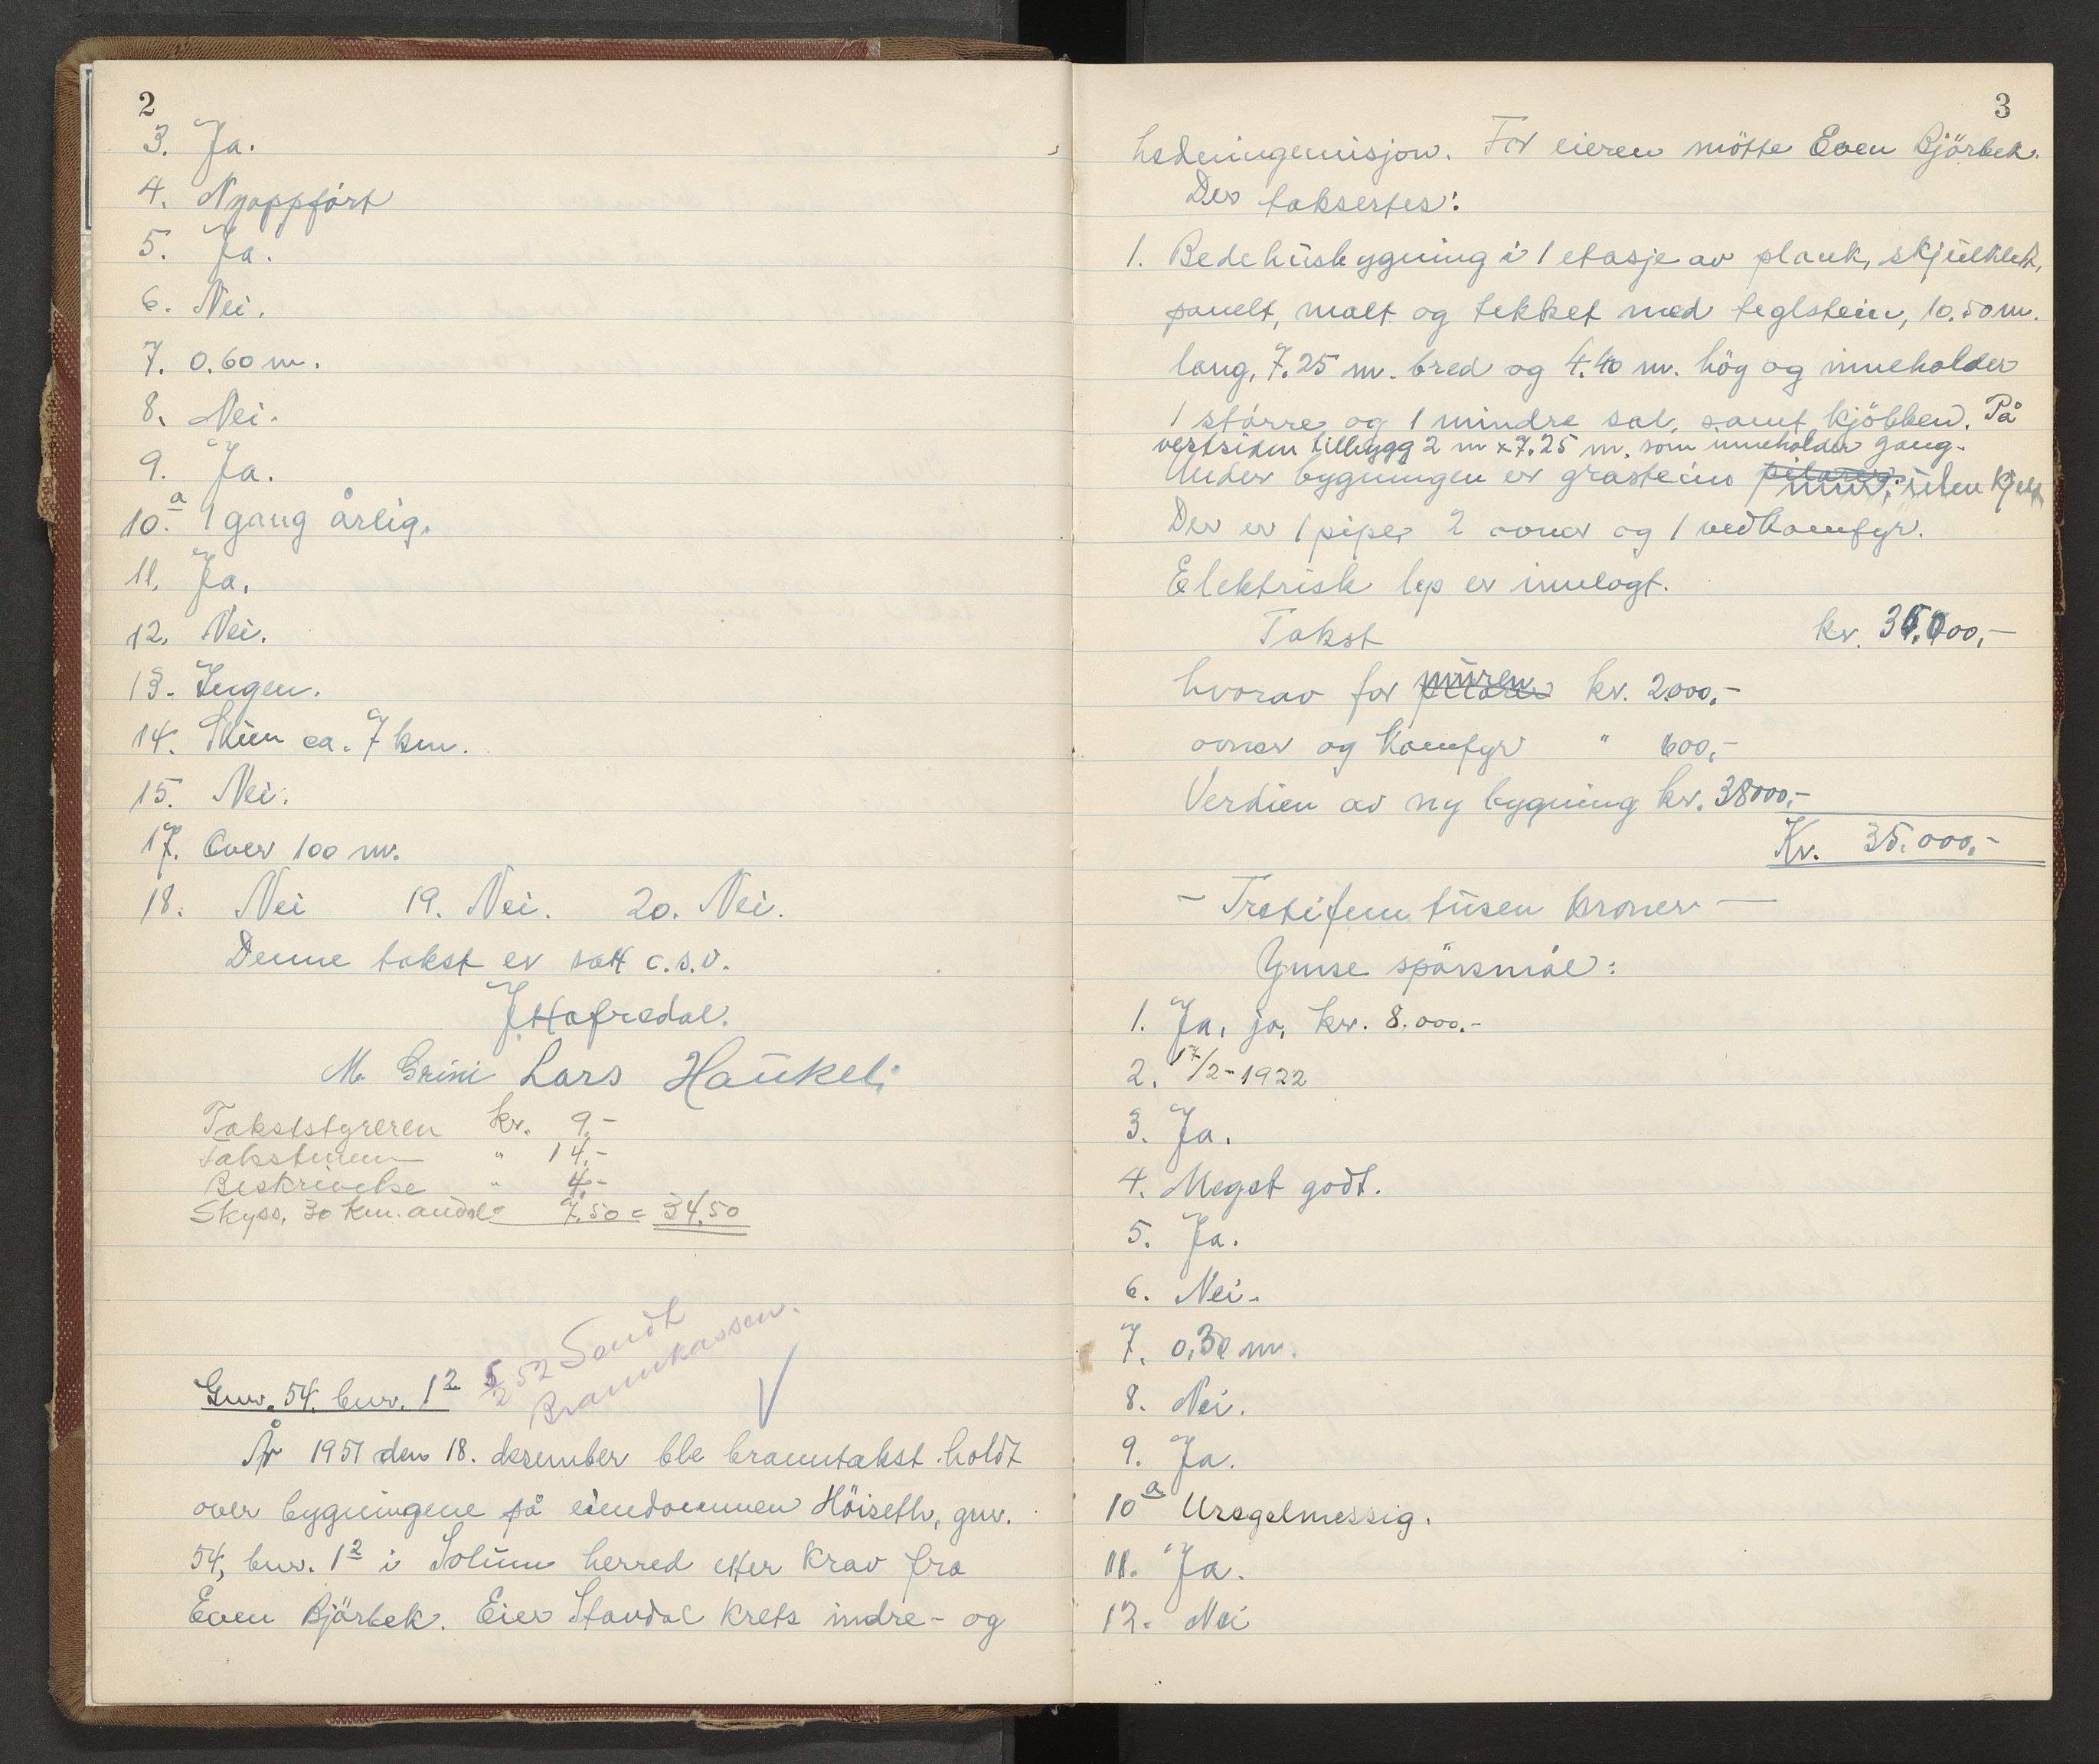 2
3. Ja.
4. Nyoppført
5. Ja.
6. Nei.
7. 0.60 m.
8. Nei.
9. Ja.
10.a 1 gang årlig.
11. Ja.
12. Nei.
13. Ingen.
14. Skien ca. 7 km.
15. Nei.
17. Over 100 m.
18. Nei 19. Nei. 20. Nei.
Denne takst er satt o.s.v.
J. Hafredal.
M. Grini Lars Haukeli
Takststyreren kr. 9.-
Takstmenn " 14.-
Beskrivelse " 4.-
Skyss, 30 km. andel " 7.50 = 34.50
5/2 52 Sendt
Brannkassen.
Gnr. 54. bnr. 12
År 1951 den 18. desember ble branntakst holdt
over bygningene på eiendommen Höiseth, gnr.
54, bnr. 12 i Solum herred etter krav fra
Even Bjørbek. Eier Stavdal krets indre- og
3
hedningemisjon. For eieren møtte Even Bjørbek.
Der taksertes:
1. Bedehusbygning i 1 etasje av plank, skjulklet,
panelt, malt og tekket med teglstein, 10.50 m.
lang, 7.25 m. bred og 4.40 m. høg og inneholder
1 større og 1 mindre sal, samt kjøkken. På
vestsiden tilbygg 2 m x 7.25 m. som inneholder gang.
Under bygningen er gråsteins pilarer. mur, uten kjeller
Der er 1 pipe, 2 ovner og 1 vedkomfyr.
Elektrisk lys er innlagt.
Takst kr. 35.000,-
hvorav for pilarer muren kr. 2000,-
ovner og komfyr " 600,-
Verdien av ny bygning kr. 38000,-
Kr. 35.000,-
- Trettifem tusen kroner -
Ymse spørsmål:
1. Ja, ja, kr. 8.000.-
2. 17/2-1922
3. Ja.
4. Meget godt.
5. Ja.
6. Nei.
7. 0,30 m.
8. Nei.
9. Ja.
10a Uregelmessig.
11. Ja.
12. Nei